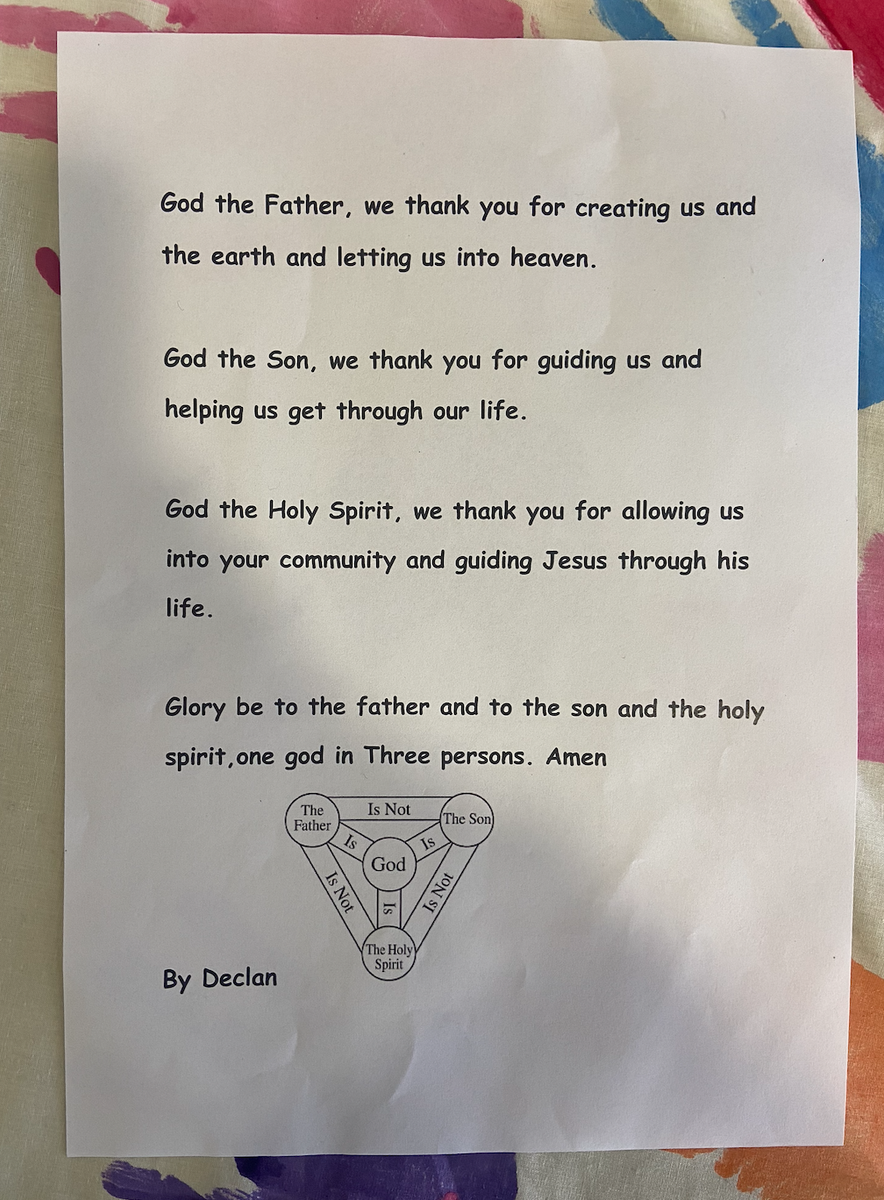 God the Father, we thank you for creating us and
the earth and letting us into heaven.
God the Son, we thank you for guiding us and
helping us get through our life.
God the Holy Spirit, we thank you for allowing us
into your community and guiding Jesus through his
life.
Glory be to the father and to the son and the holy
spirit,one god in Three persons. Amen
The
Father
Is Not
The Son
Is
Is
God
Is Not
Is
Is Not
The Holy
Spirit
By Declan